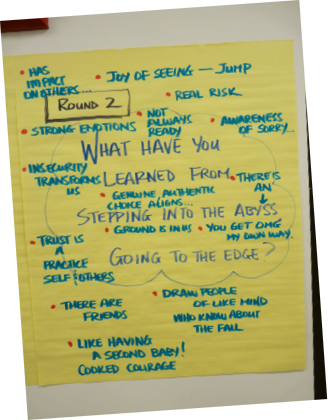 • HAS
IMPACT
ON OTHERS...
• JOY OF SEEING — JUMP
ROUND 2
• REAL RISK
• STRONG EMOTIONS
• NOT
ALWAYS
READY
• AWARENESS
OF SORRY...
WHAT HAVE YOU
LEARNED FROM
STEPPING INTO THE ABYSS
GOING TO THE EDGE?
• INSECURITY
TRANSFORMS
US
• GENUINE, AUTHENTIC
CHOICE ALIGNS...
• THERE IS
AN
↓
• GROUND IS IN US
• YOU GET
MY OWN WAY.
• TRUST IS
A
PRACTICE
SELF & OTHERS
• THERE ARE
FRIENDS
• DRAW PEOPLE
OF LIKE MIND
WHO KNOW ABOUT
THE FALL
• LIKE HAVING
A SECOND BABY!
COOKED COURAGE